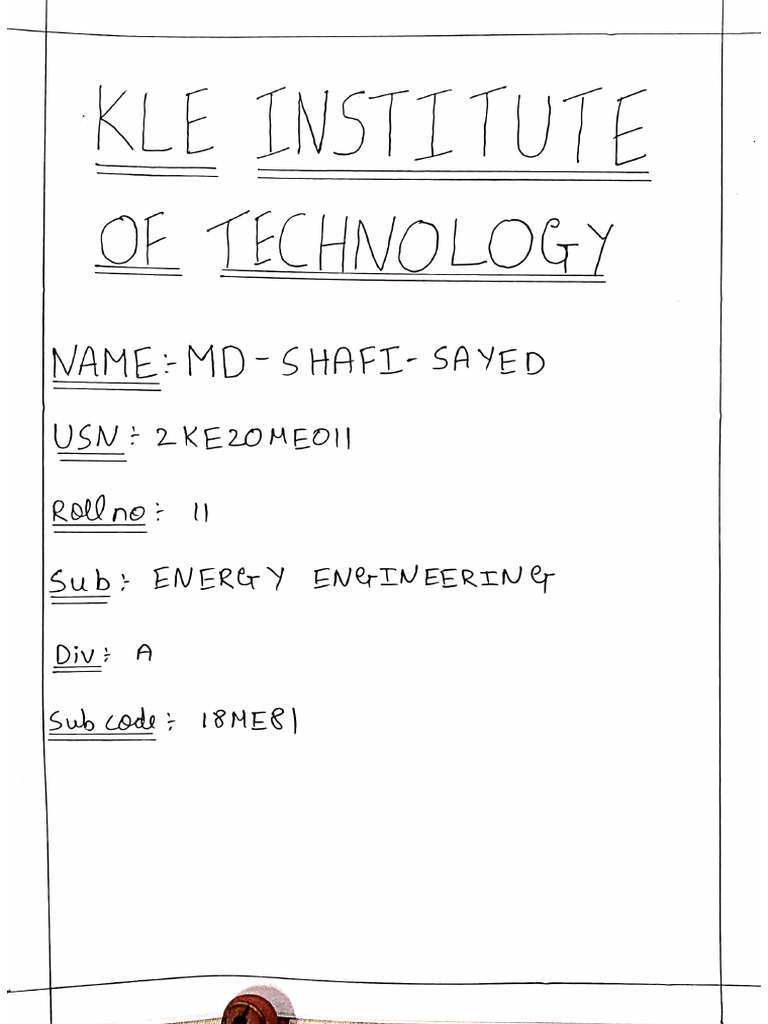 KLE INSTITUTE
OF TECHNOLOGY
NAME:- MD-SHAFI-SAYED
USN:- 2KE20ME011
Roll no:- 11
Sub:- ENERGY ENGINEERING
Div:- A
Sub code:- 18ME81